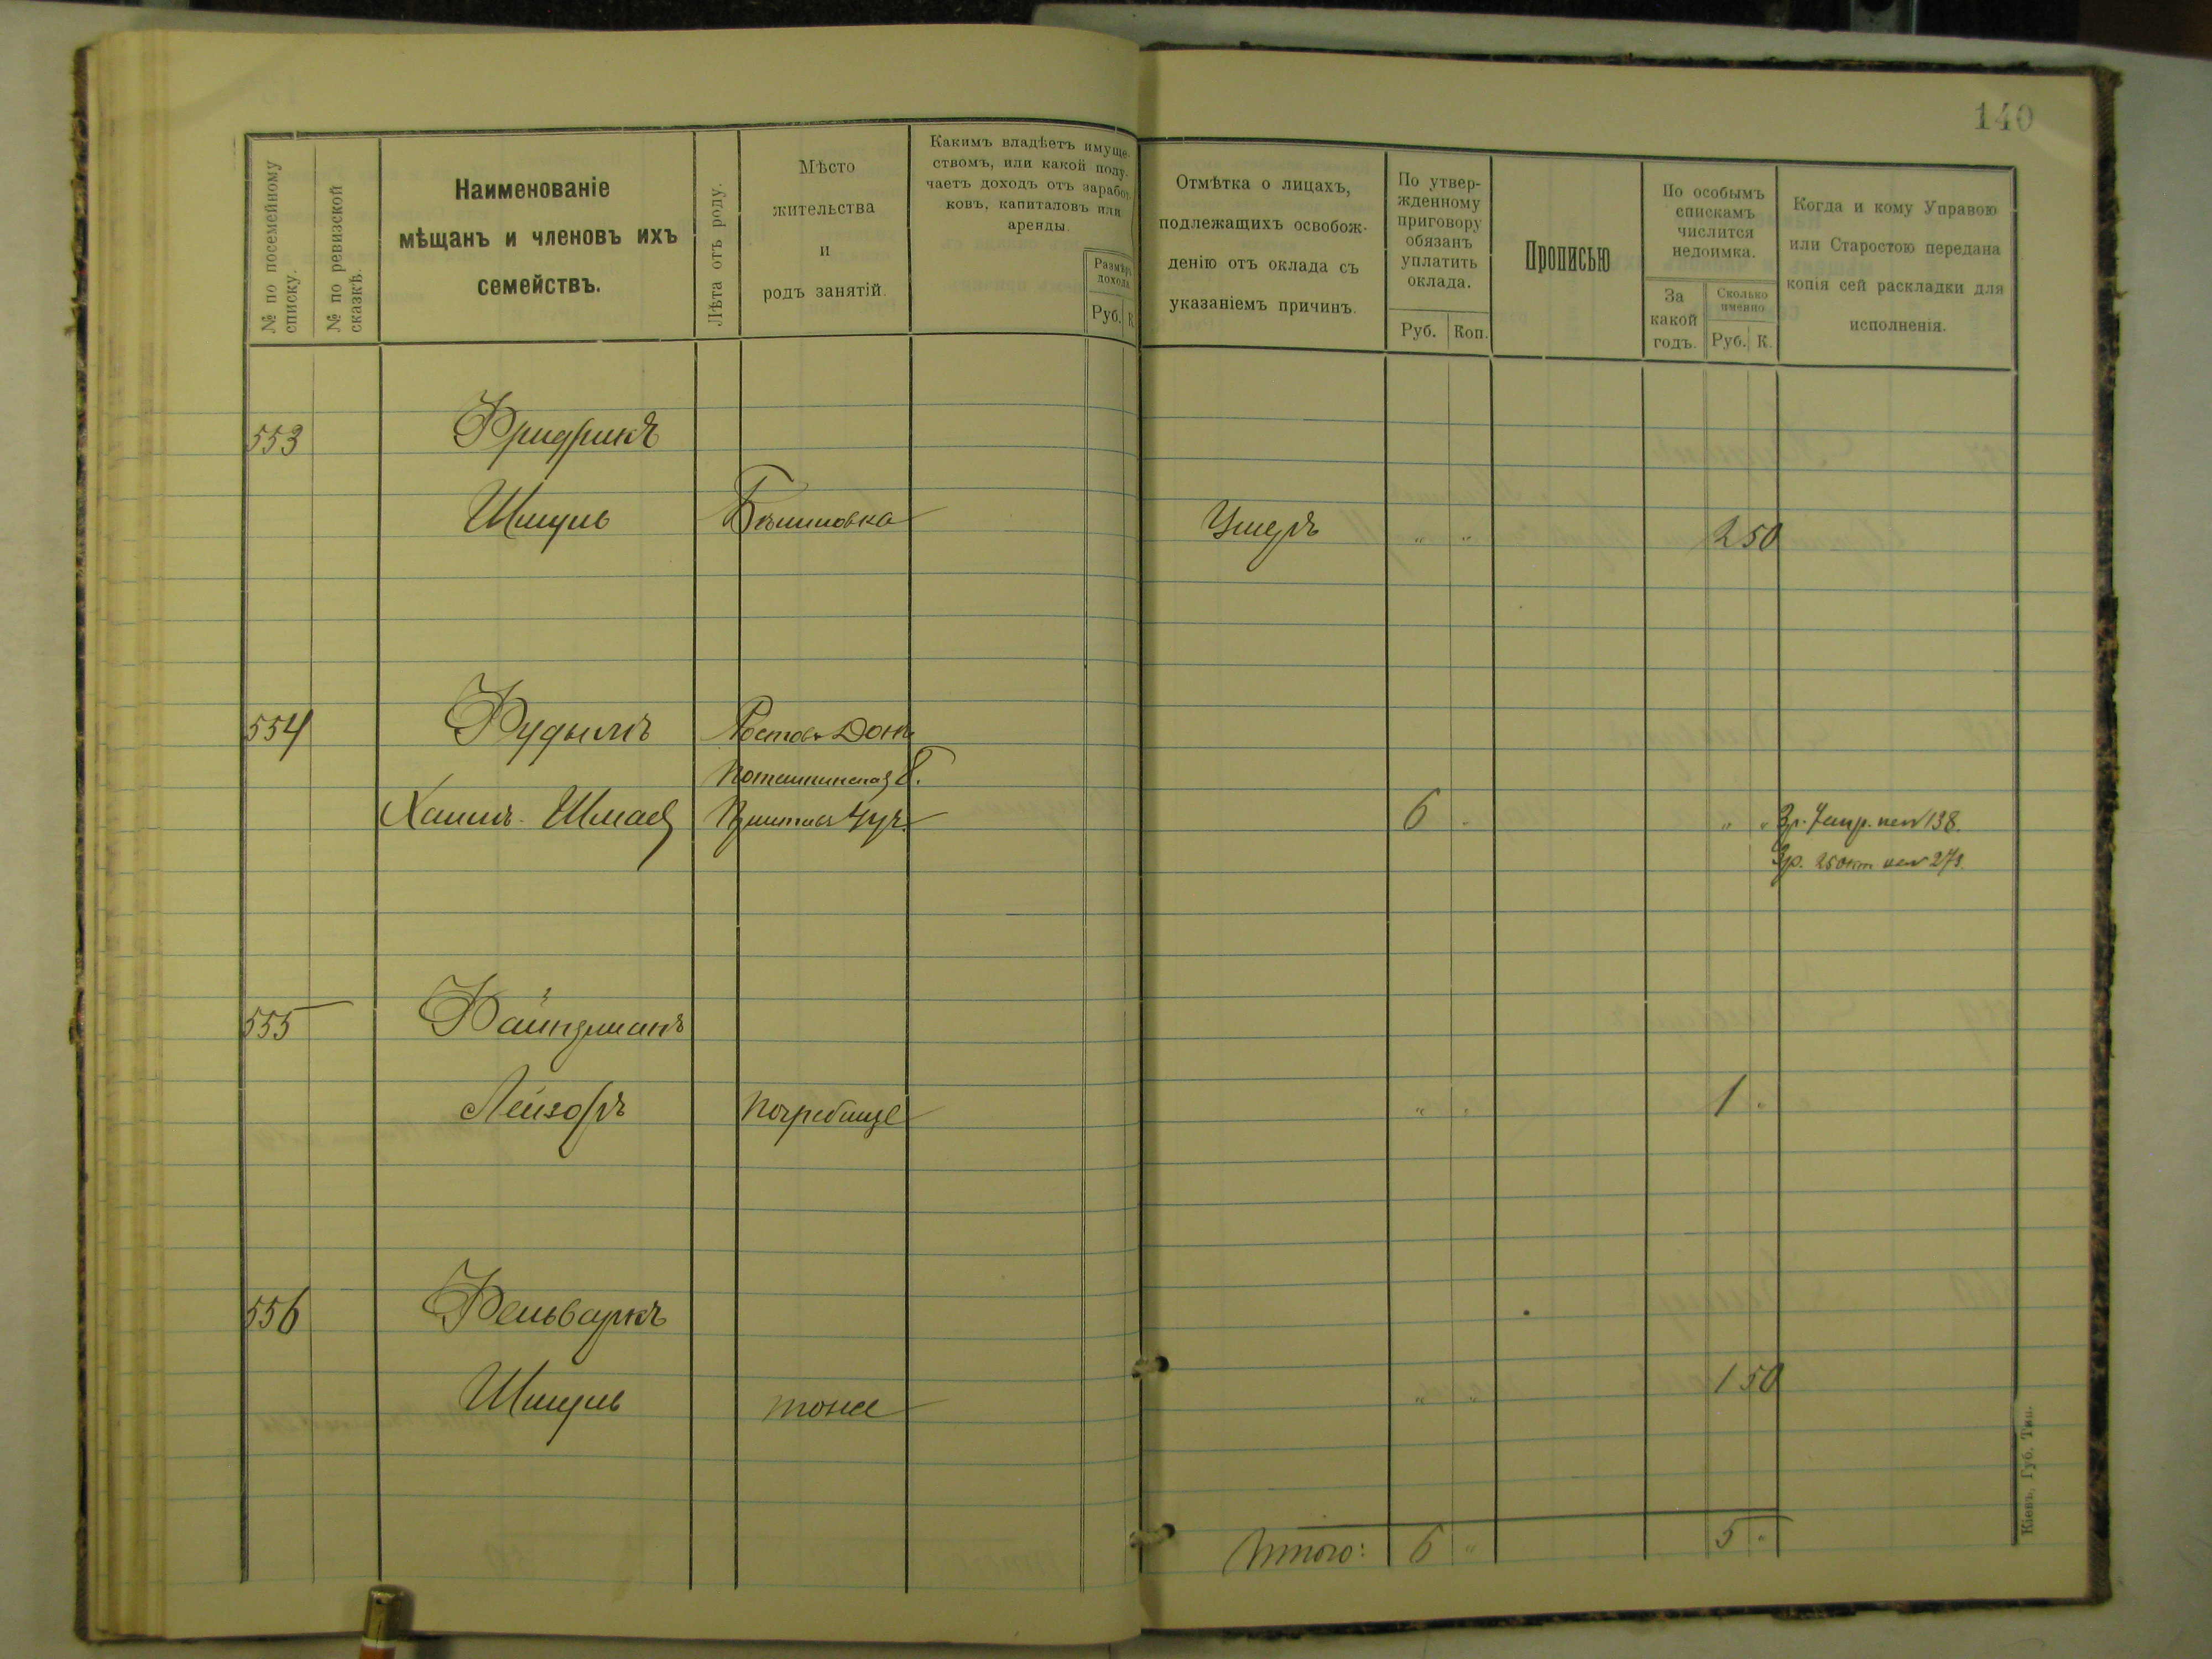 140
№ по посемейному
списку.
№ по ревизской
сказкѣ.
Наименованіе
мѣщанъ и членовъ ихъ
семействъ.
Лѣта отъ роду.
Мѣсто
жительства
и
родъ занятій.
Какимъ владѣетъ имуще-
ствомъ, или какой полу-
чаетъ доходъ отъ заработ-
ковъ, капиталовъ или
аренды.
Размѣръ
дохода
Руб. К.
Отмѣтка о лицахъ,
подлежащихъ освобож-
денію отъ оклада съ
указаніемъ причинъ.
По утвер-
жденному
приговору
обязанъ
уплатить
оклада.
Руб. Коп.
Прописью
По особымъ
спискамъ
числится
недоимка.
За
какой
годъ.
Сколько
именно
Руб. К.
Когда и кому Управою
или Старостою передана
копія сей раскладки для
исполненія.
553 Фридрикъ
Шмуль Умеръ " " 2 50
554 Фудымъ Ростовъ Донъ
Хаимъ-Шмая 6 " " "
3р. 25 окт
555 Файнзманъ
Лейзоръ Погребище " " 1 "
556 Фельваркъ
Шмуль тоже " " 1 50
Итого: 6 " 5 "
Кіевъ, Губ. Тип.